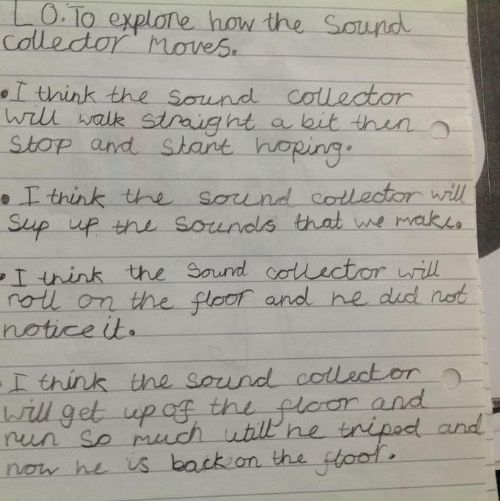 L O. To explore how the Sound
collector moves.
• I think the sound collector
will walk straight a bit then
stop and start hoping.
• I think the sound collector will
sup up the sounds that we make.
• I think the sound collector will
roll on the floor and he did not
notice it.
• I think the sound collector
will get up of the floor and
run so much utill he triped and
now he is back on the floor.